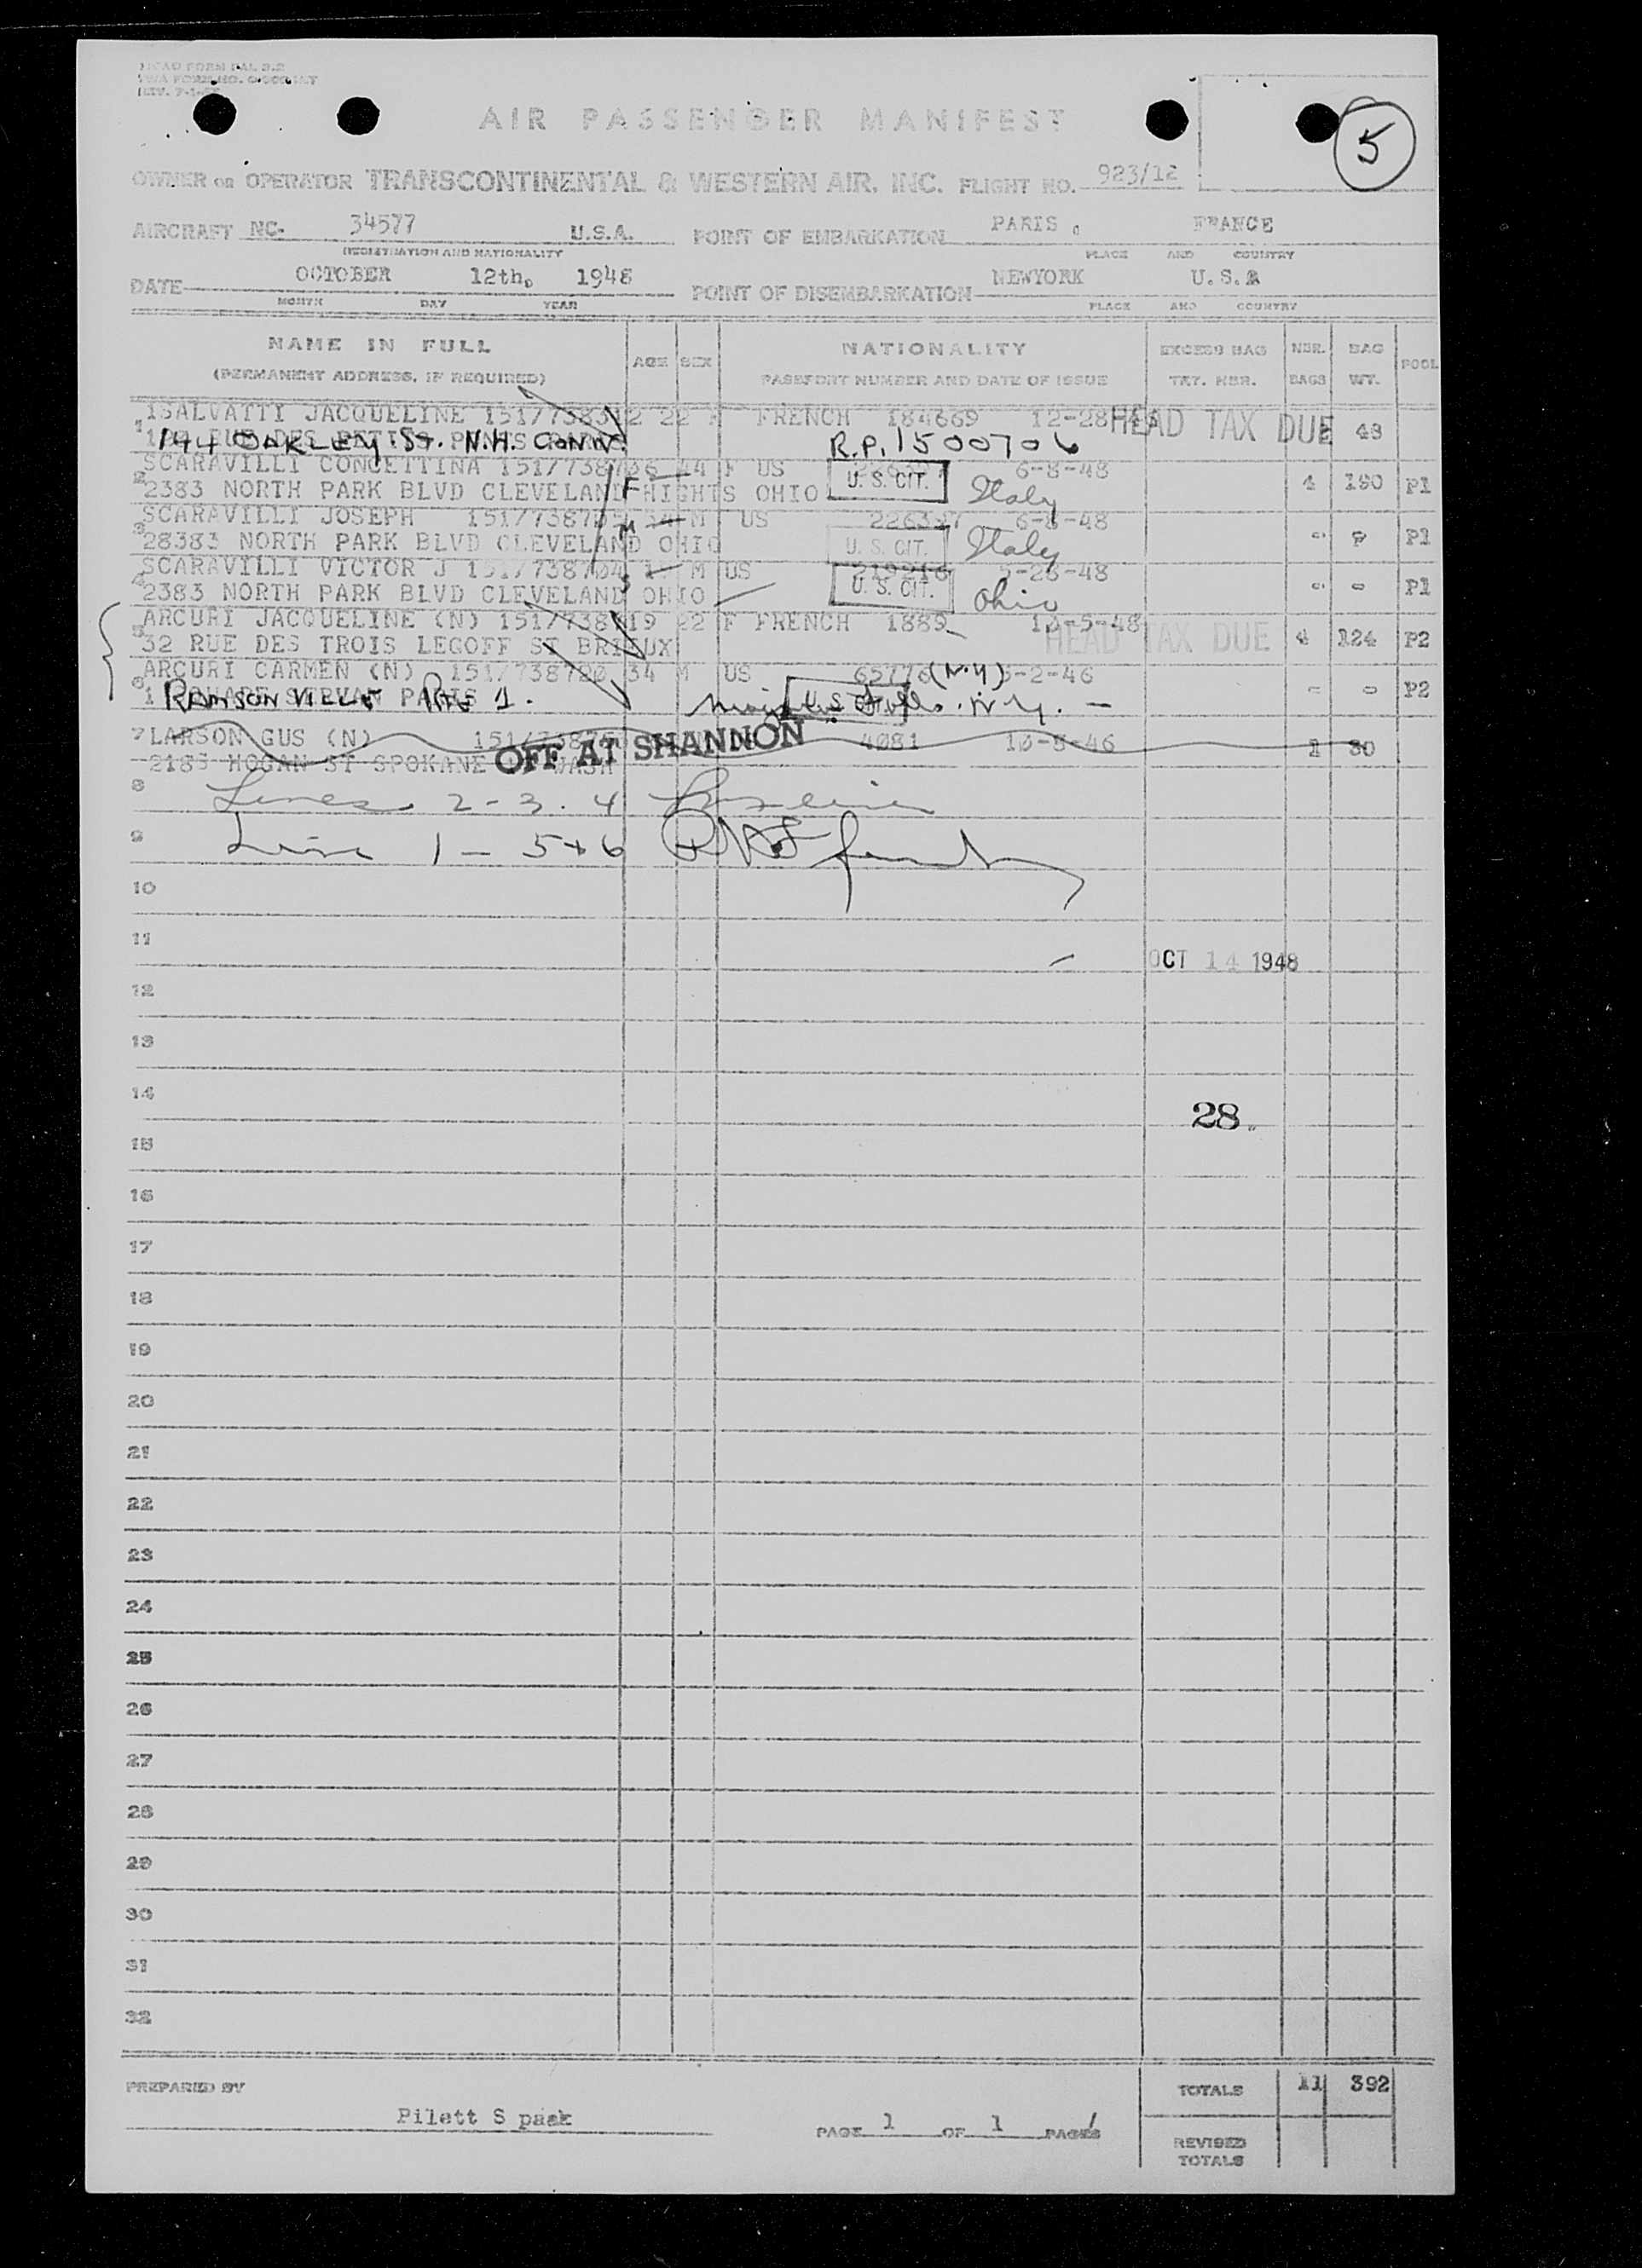 5
AIR PASSENGER MANIFEST
OWNER OR OPERATOR TRANSCONTINENTAL & WESTERN AIR, INC. FLIGHT NO. 923/12
AIRCRAFT NC- 34577 U.S.A. POINT OF EMBARKATION PARIS, FRANCE
(REGISTRATION AND NATIONALITY PLACE AND COUNTRY
DATE OCTOBER 12th, 1948 POINT OF DISEMBARKATION NEWYORK U.S.A
MONTH DAY YEAR PLACE AND COUNTRY
NAME IN FULL AGE SEX NATIONALITY EXCESS BAG NBR. BAG POOL
(PERMANENT ADDRESS, IF REQUIRED) PASSPORT NUMBER AND DATE OF ISSUE TKT. NBR. BAGS WT.
1 SALVATTI JACQUELINE 22 FRENCH 184669 12-28 HEAD TAX DUE 48
144 OAKLEY St. N.H. CONN. R.P. 1500706
2 SCARAVILLI CONCETTINA 44 F US 6-8-48
2383 NORTH PARK BLVD CLEVELAND F HIGHTS OHIO U.S. CIT. Italy 4 190 P1
3 SCARAVILLI JOSEPH M US 6-8-48
28383 NORTH PARK BLVD CLEVELAND OHIO U.S. CIT. Italy - P1
4 SCARAVILLI VICTOR J M US 5-28-48
2383 NORTH PARK BLVD CLEVELAND OHIO U.S. CIT. Ohio - - P1
5 ARCURI JACQUELINE (N) 22 F FRENCH 1889
32 RUE DES TROIS LEGOFF ST BRIEUX HEAD TAX DUE 4 124 P2
6 ARCURI CARMEN (N) 151/738720 34 M US 65776 (N.Y) 5-2-46
RANSONVILLE 1. N.Y. - - - P2
7 LARSON GUS (N) 4081 1 30
HOGAN ST SPOKANE WASH OFF AT SHANNON
8 Lines 2-3.4
9 Line 1 - 5+6
10
11 OCT 14 1948
12
13
14 28
15
16
17
18
19
20
21
22
23
24
25
26
27
28
29
30
31
32
PREPARED BY TOTALS 11 392
Pilett S paak PAGE 1 OF 1 PAGES
REVISED
TOTALS